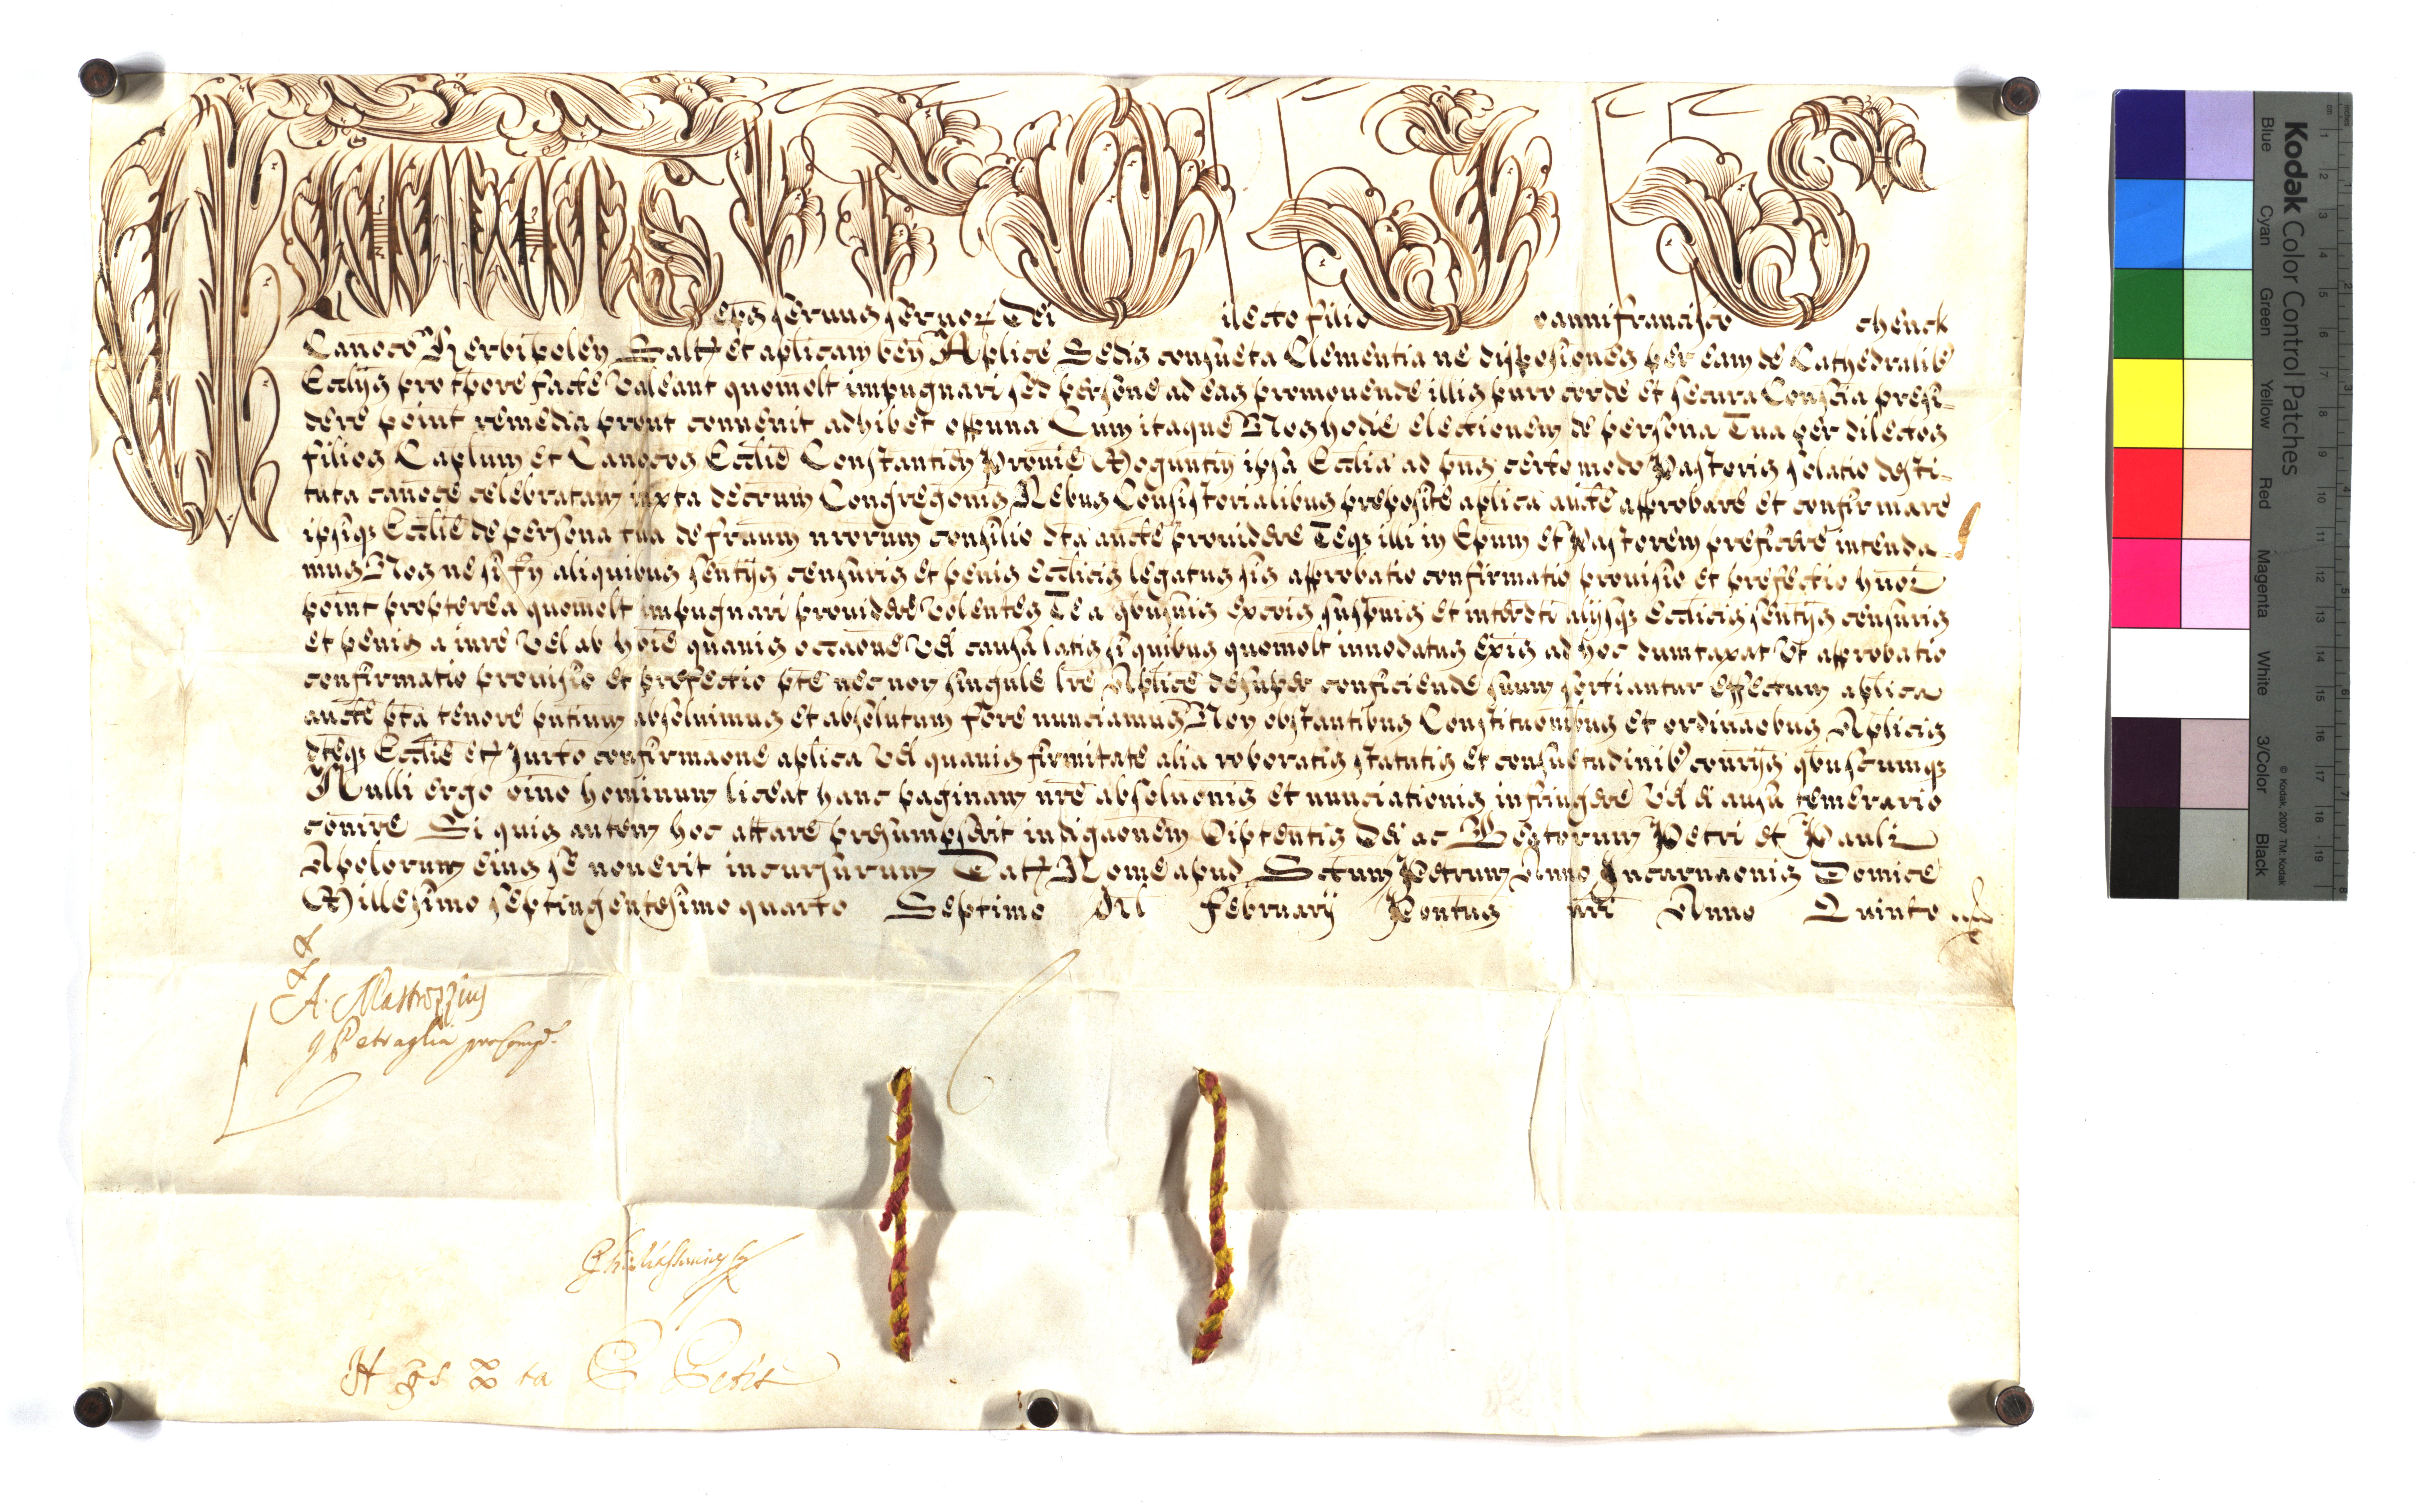 Clemens eps seruus seruor Dei Dilecto filio Joannifrancisco Schenck
Canoco Herbipolen Saltm et aplicam ben Aplice Sedis consueta Clementia ne dispositiones per eam de Cathedralib
Eccliis pro tpore facte valeant quomolt impugnari sed persone ad eas promouende illis puro corde et secura Conscia presi-
dere point remedia prout conuenit adhibet oppuna Cum itaque Nos hodie electionem de persona Tua per dilectos
filios Caplum et Canocos Ecclie Constantien Prouie Moguntin ipsa Ecclia ad pns certo modo Pastoris solatio desti-
tuta canoce celebratam iuxta decrum Congregonis Rebus Consistorialibus preposite aplica aucte approbare et confirmare
ipsiq Ecclie de persona tua de fratrum nrorum consilio dta aucte prouidere Teq illi in Epum et Pastorem preficere intenda-
mus Nos ne si fn aliquibus sentijs censuris et penis Ecclicis legatus sis approbatio confirmatio prouisio et prefectio hmoi
point propterea quomolt impugnari prouidere volentes Te a qbusuis excois suspnis et interdti alijsq Ecclicis sentijs censuris
et penis a iure vel ab hoie quauis occaone vel causa latis si quibus quomolt innodatus exis ad hoc dumtaxat ut approbatio
confirmatio prouisio et prefectio pte nec non singule lre Aplice desuper conficiende suum sortiantur effectum aplica
aucte pta tenore pntium absoluimus et absolutum fore nunciamus Non obstantibus Constituonibus et ordinaobus Aplicis
dteq Ecclie etm iurto confirmaone aplica vel quauis firmitate alia roboratis statutis et consuetudinib contrijs qbuscumq
Nulli ergo oino hominum liceat hanc paginam nre absoluonis et nunciationis infringere vel ei ausu temerario
contire Si quis autem hoc attare presumpserit indignaonem Oiptentis Dei ac Beatorum Petri et Pauli
Apolorum eius se nouerit incursurum Datm Rome apud Sctum Petrum Anno Incarnaonis Domice
Millesimo septingentesimo quarto Septimo Kl February Pontus nri Anno Quinto
A. Mastrozzius
Petraglia